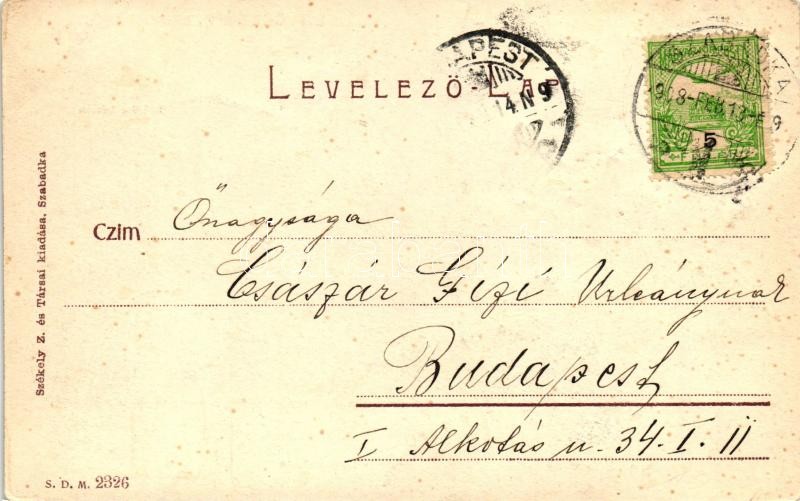 LEVELEZŐ-LAP
BUDAPEST
14 N 9
SZABADKA
908 FEB 13
5
Czim Őnagysága
Császár Gizi Urleánynak
Budapest
I Alkotás u. 34. I. 11
Székely Z. és Társai kiadása, Szabadka
S. D. M. 2326